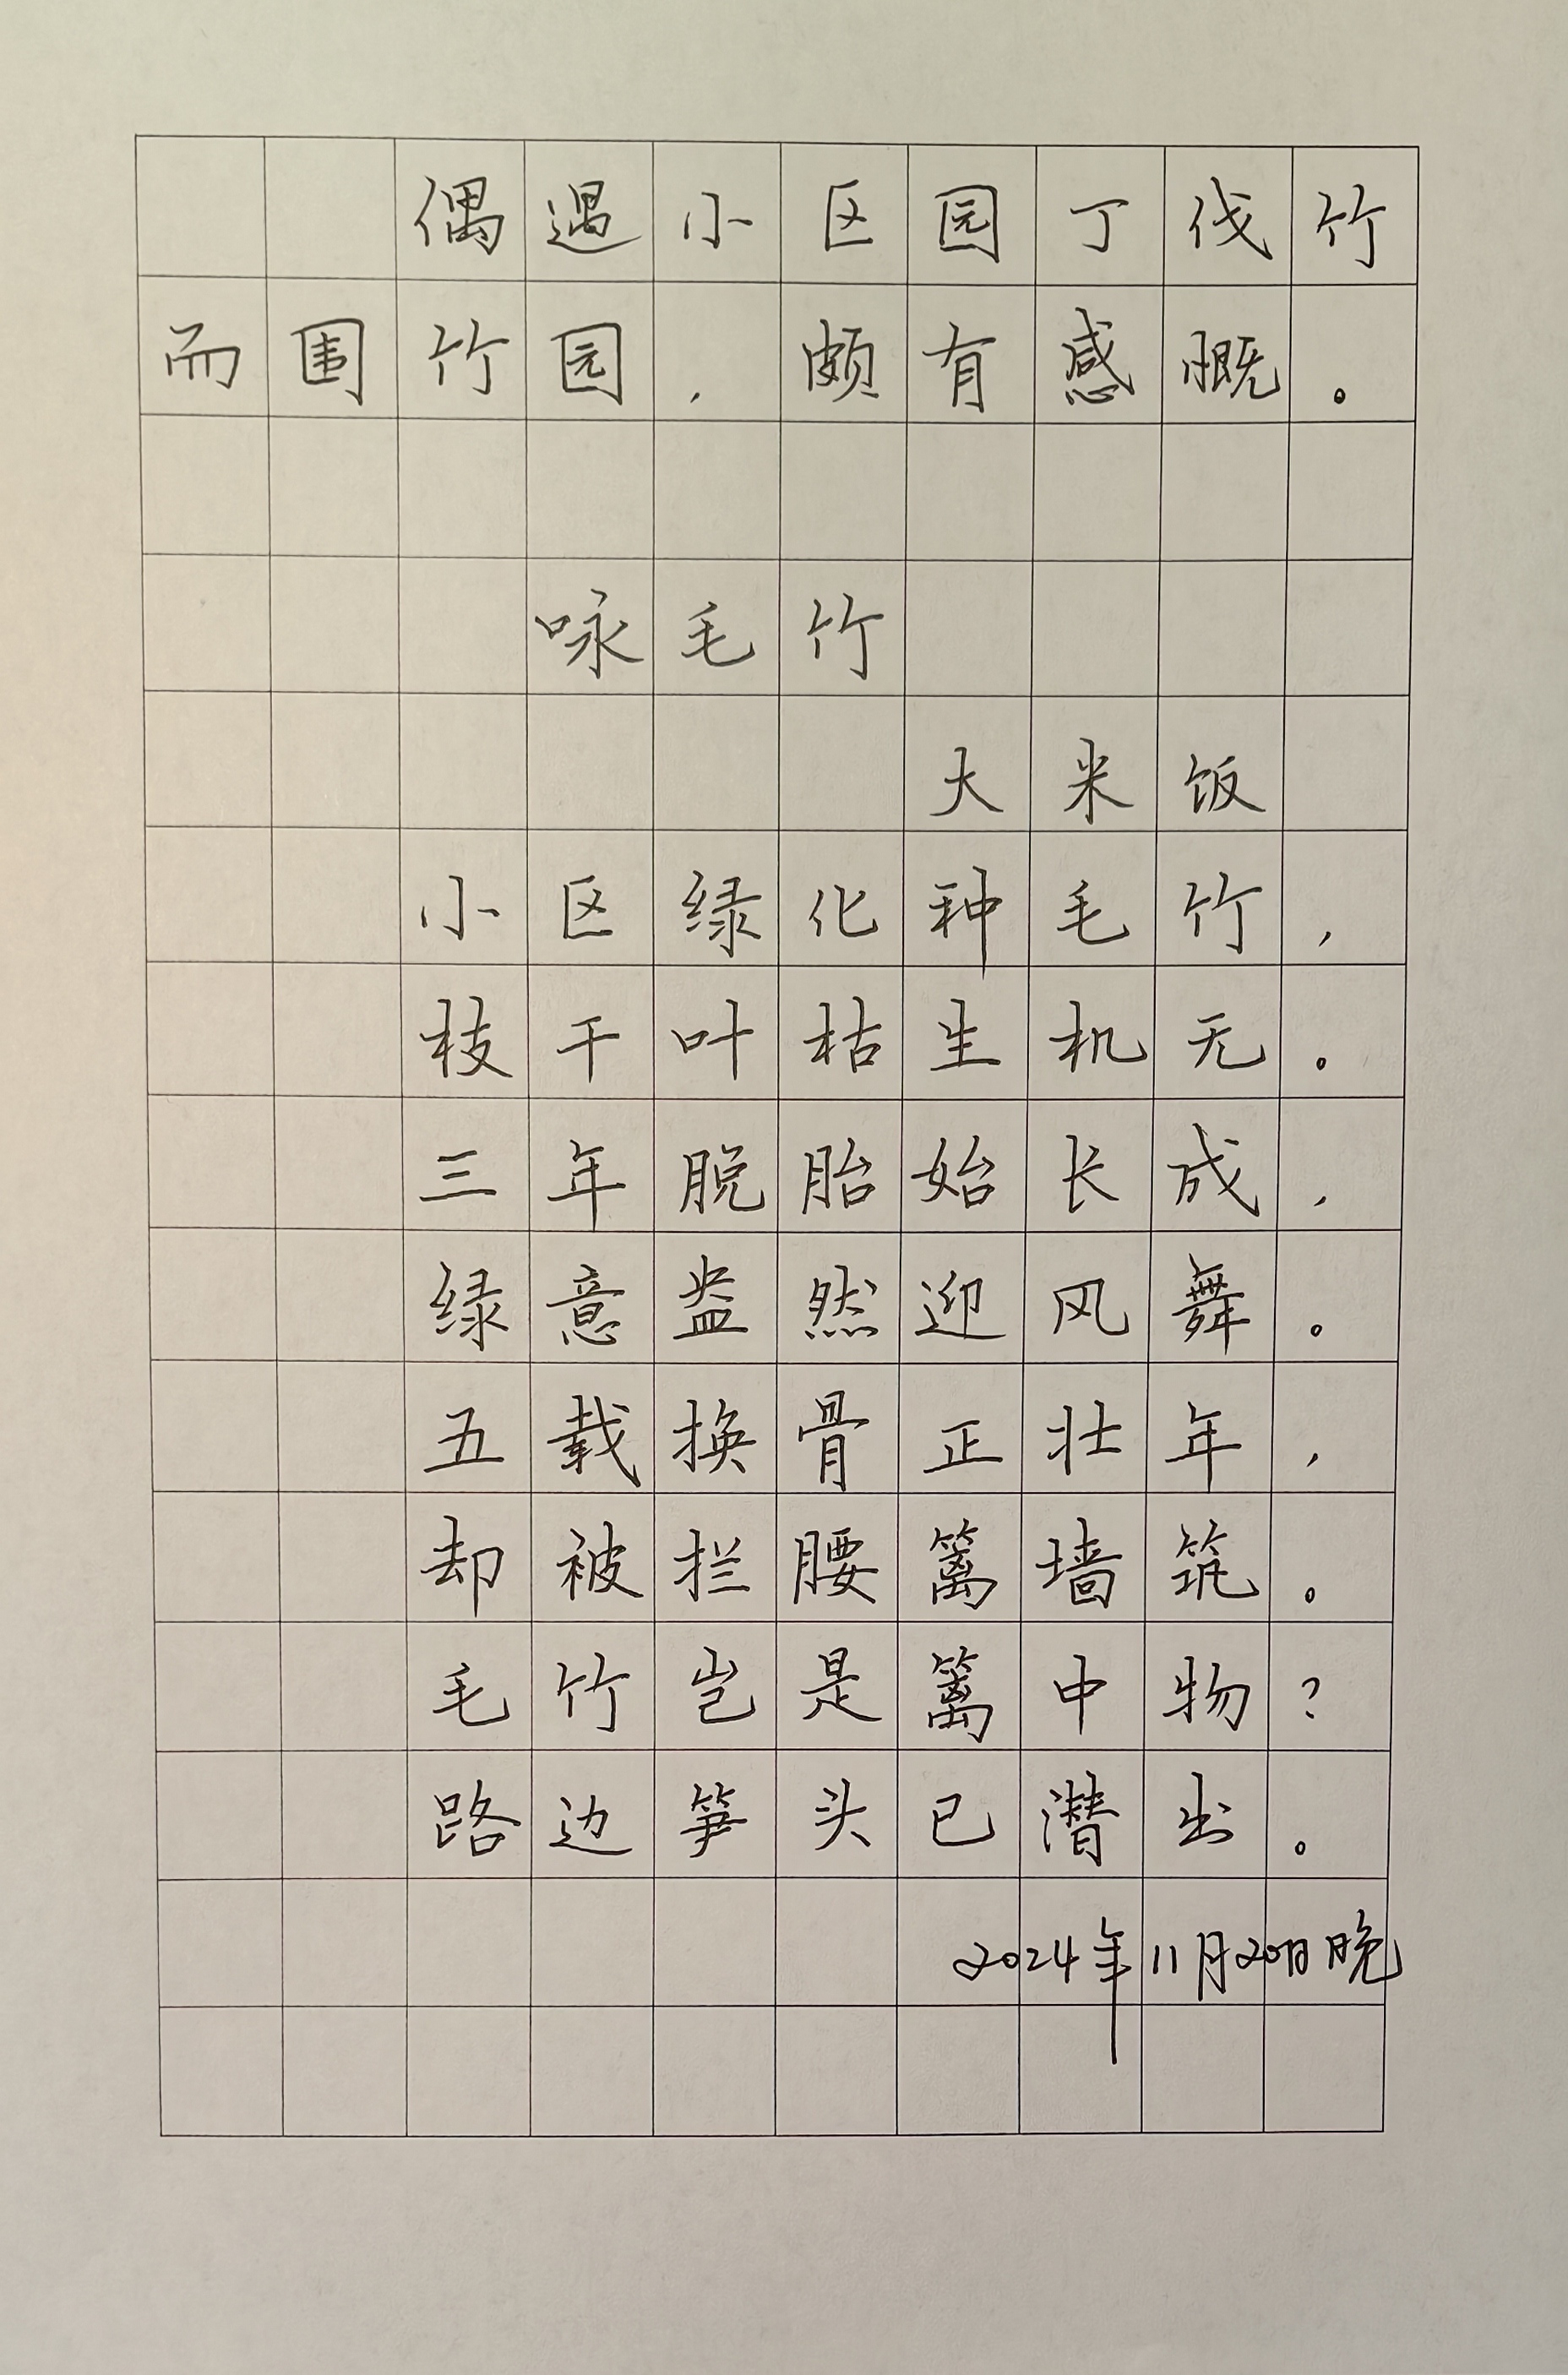 偶遇小区园丁伐竹
而围竹园，颇有感慨。
咏毛竹
大米饭
小区绿化种毛竹，
枝干叶枯生机无。
三年脱胎始长成，
绿意盎然迎风舞。
五载换骨正壮年，
却被拦腰篱墙筑。
毛竹岂是篱中物？
路边笋头已潜出。
2024年11月20日晚